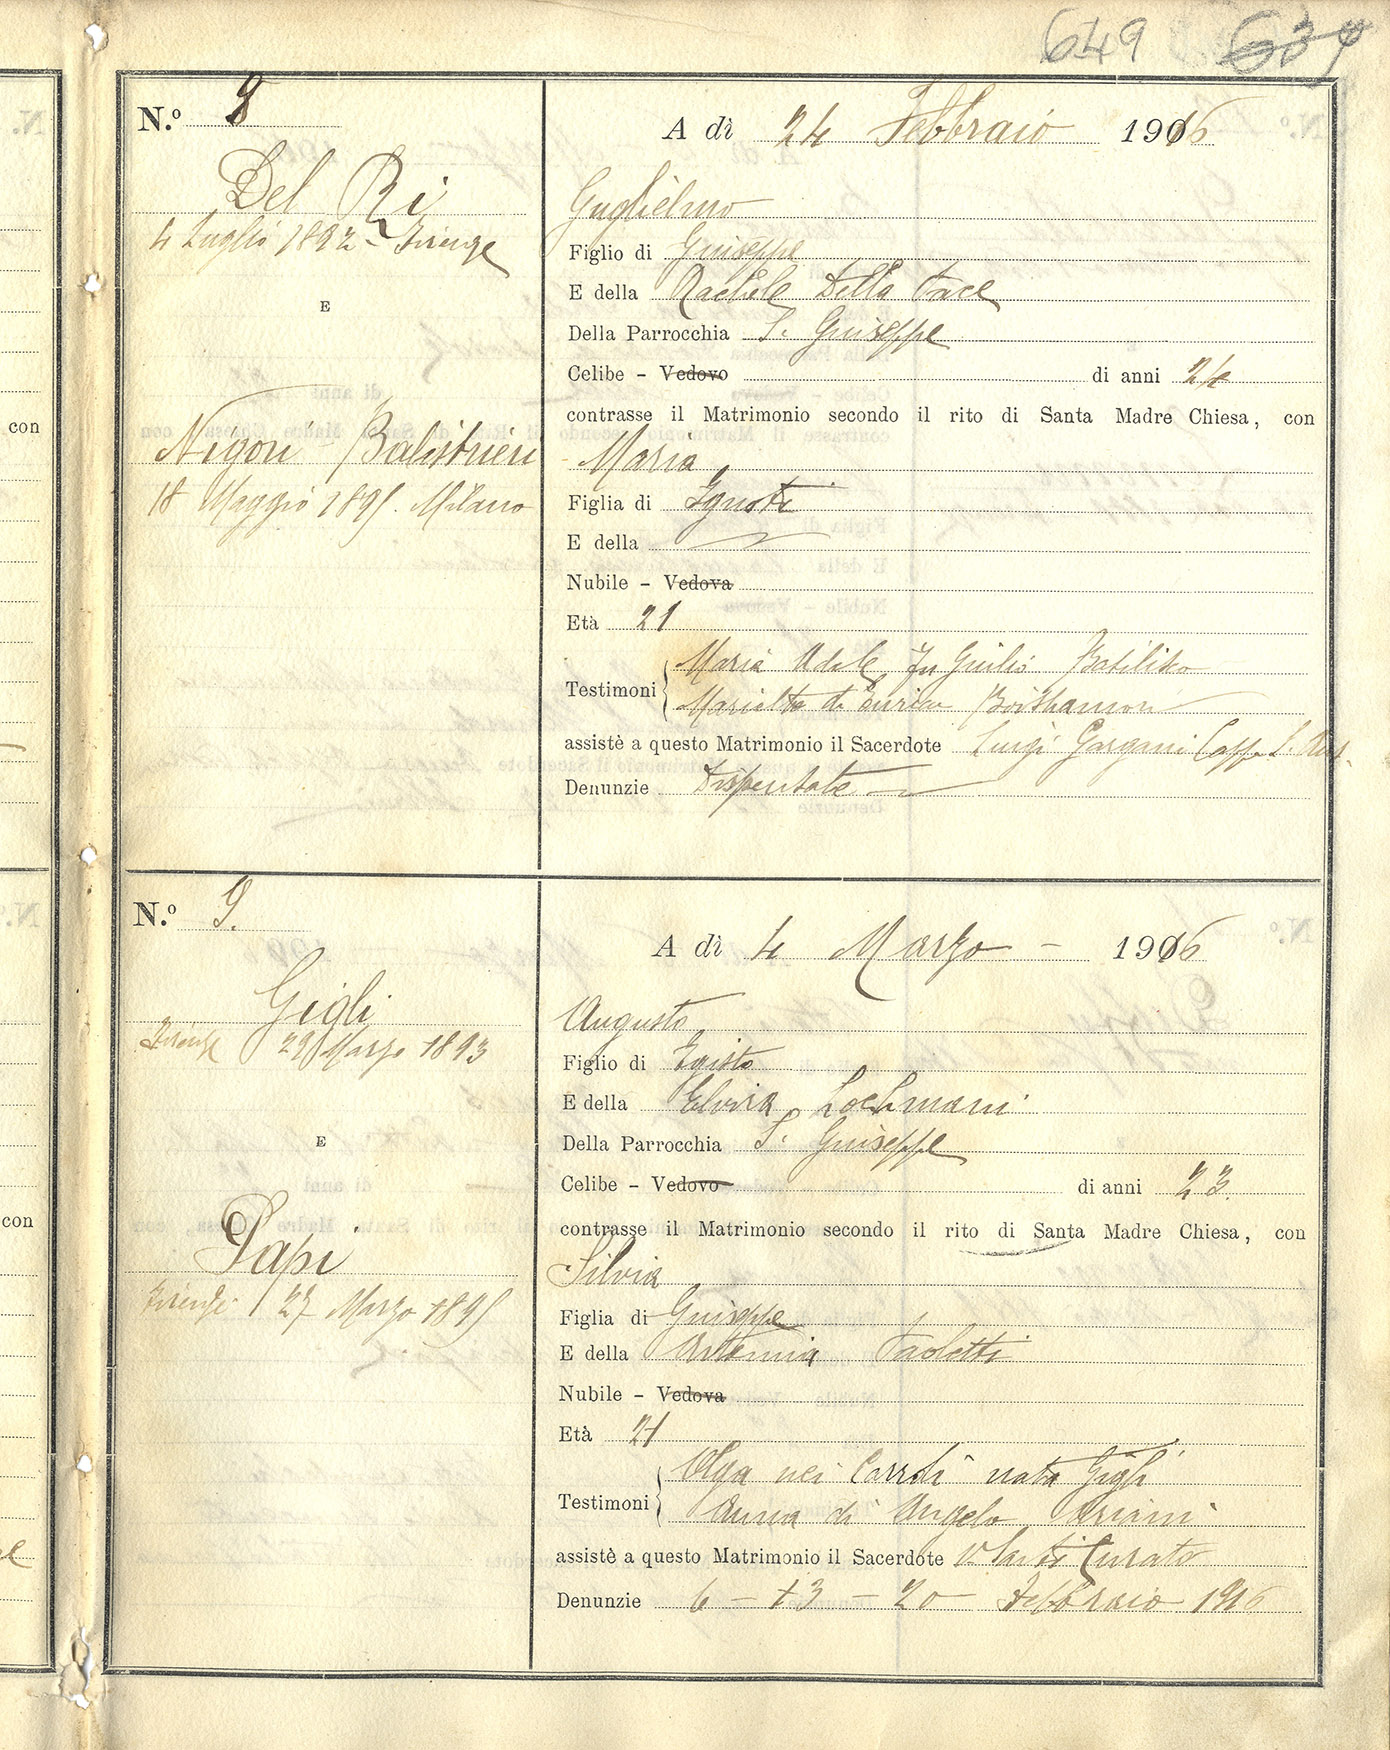 649 634
N.º 8
A dì 24 Febbraio 1916
Del Re
4 Luglio 1892 - Firenze
E
Nigori - Balistrieri
18 Maggio 1895. Milano
Guglielmo
Figlio di Giuseppe
E della Rachele Della Pace
Della Parrocchia S. Giuseppe
Celibe – Vedovo di anni 24
contrasse il Matrimonio secondo il rito di Santa Madre Chiesa, con
Maria
Figlia di Ignoti
E della
Nubile – Vedova
Età 21
Testimoni Maria Adele fu Giulio Basilisco
Marietta di Enrico
assistè a questo Matrimonio il Sacerdote Luigi Gargani Capp.
Denunzie Dispensate
N.º 9.
A dì 4 Marzo - 1916
Gigli
Firenze 29 Marzo 1893
E
Papi
Firenze 27 Marzo 1895
Augusto
Figlio di Egisto
E della Elvira Lochmann
Della Parrocchia S. Giuseppe
Celibe – Vedovo di anni 23.
contrasse il Matrimonio secondo il rito di Santa Madre Chiesa, con
Silvia
Figlia di Giuseppe
E della Artemia Paoletti
Nubile – Vedova
Età 21
Testimoni Olga nei Corroti nata Gigli
Anna di Angelo Ariani
assistè a questo Matrimonio il Sacerdote Curato
Denunzie 6 - 13 - 20 Febbraio 1916
con
con